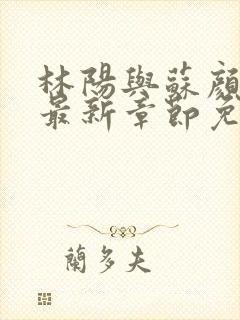 林陽與蘇顏
最新章節免
蘭多夫